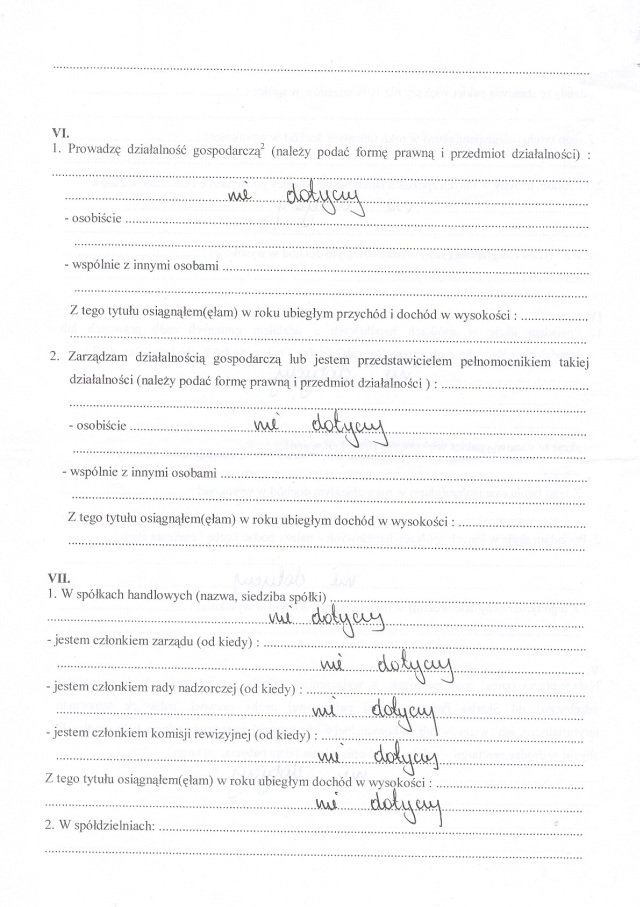 VI.
1. Prowadzę działalność gospodarczą² (należy podać formę prawną i przedmiot działalności) :
nie dotyczy
- osobiście
- wspólnie z innymi osobami
Z tego tytułu osiągnąłem(ęłam) w roku ubiegłym przychód i dochód w wysokości :
2. Zarządzam działalnością gospodarczą lub jestem przedstawicielem pełnomocnikiem takiej
działalności (należy podać formę prawną i przedmiot działalności ) :
- osobiście nie dotyczy
- wspólnie z innymi osobami
Z tego tytułu osiągnąłem(ęłam) w roku ubiegłym dochód w wysokości :
VII.
1. W spółkach handlowych (nazwa, siedziba spółki)
nie dotyczy
- jestem członkiem zarządu (od kiedy) :
nie dotyczy
- jestem członkiem rady nadzorczej (od kiedy) :
nie dotyczy
- jestem członkiem komisji rewizyjnej (od kiedy) :
nie dotyczy
Z tego tytułu osiągnąłem(ęłam) w roku ubiegłym dochód w wysokości :
nie dotyczy
2. W spółdzielniach: